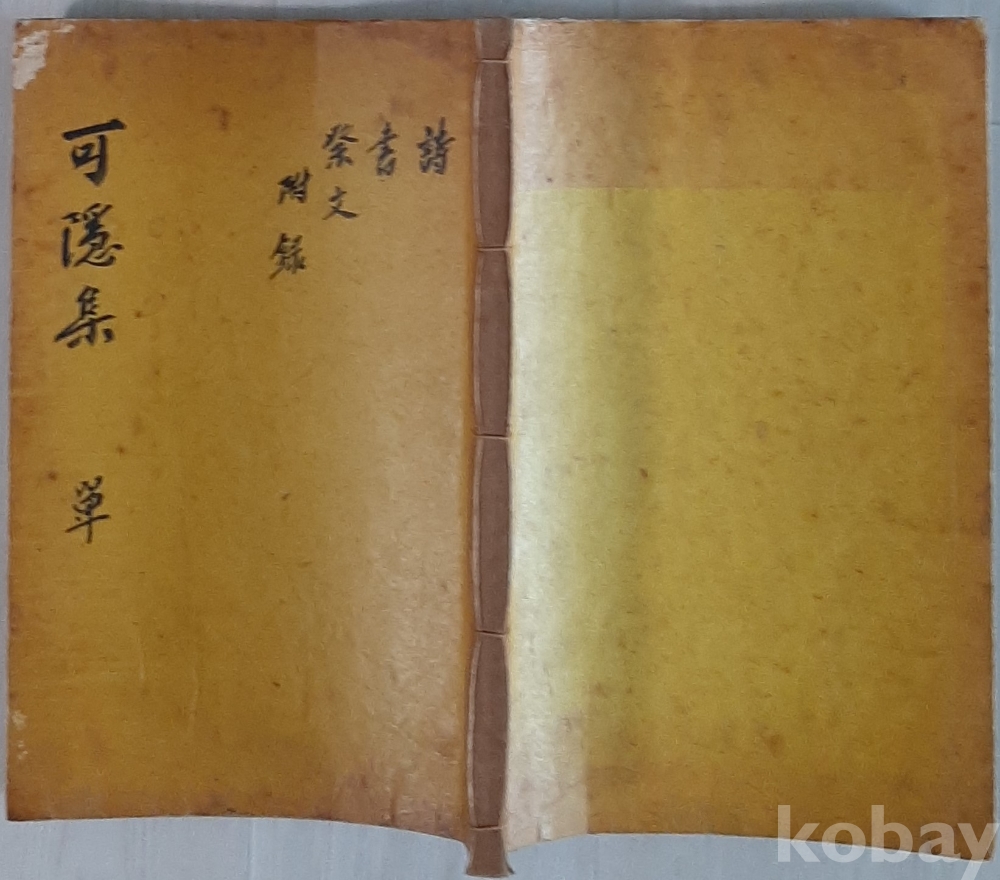 詩
書
祭文
附錄
可隱集 單
kobay